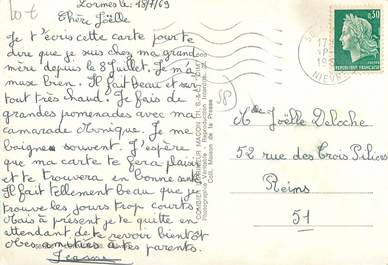 10 €
Lormes le : 18/7/69
Chère Joëlle
Je t'écris cette carte pour te
dire que je suis chez ma grand
mère depuis le 8 Juillet. Je m'a
muse bien. Il fait beau et sur
tout très chaud. Je fais de
grandes promenades avec ma
camarade Monique. Je me
baigne souvent. J'espère
que ma carte te fera plaisir
et te trouvera en bonne santé
Il fait tellement beau que je
trouve les jours trop courts.
Mais à présent je te quitte en
attendant de te revoir bientôt
Mes amitiés à tes parents.
COMBIER IMPRIMEUR MACON
Photographie Véritable - Reproduction Interdite
Coll. Maison de la Presse
58
0,30
REPUBLIQUE FRANÇAISE
17
19
NIEVRE
Melle Joëlle Deloche
52 rue des Trois Piliers
Reims
51